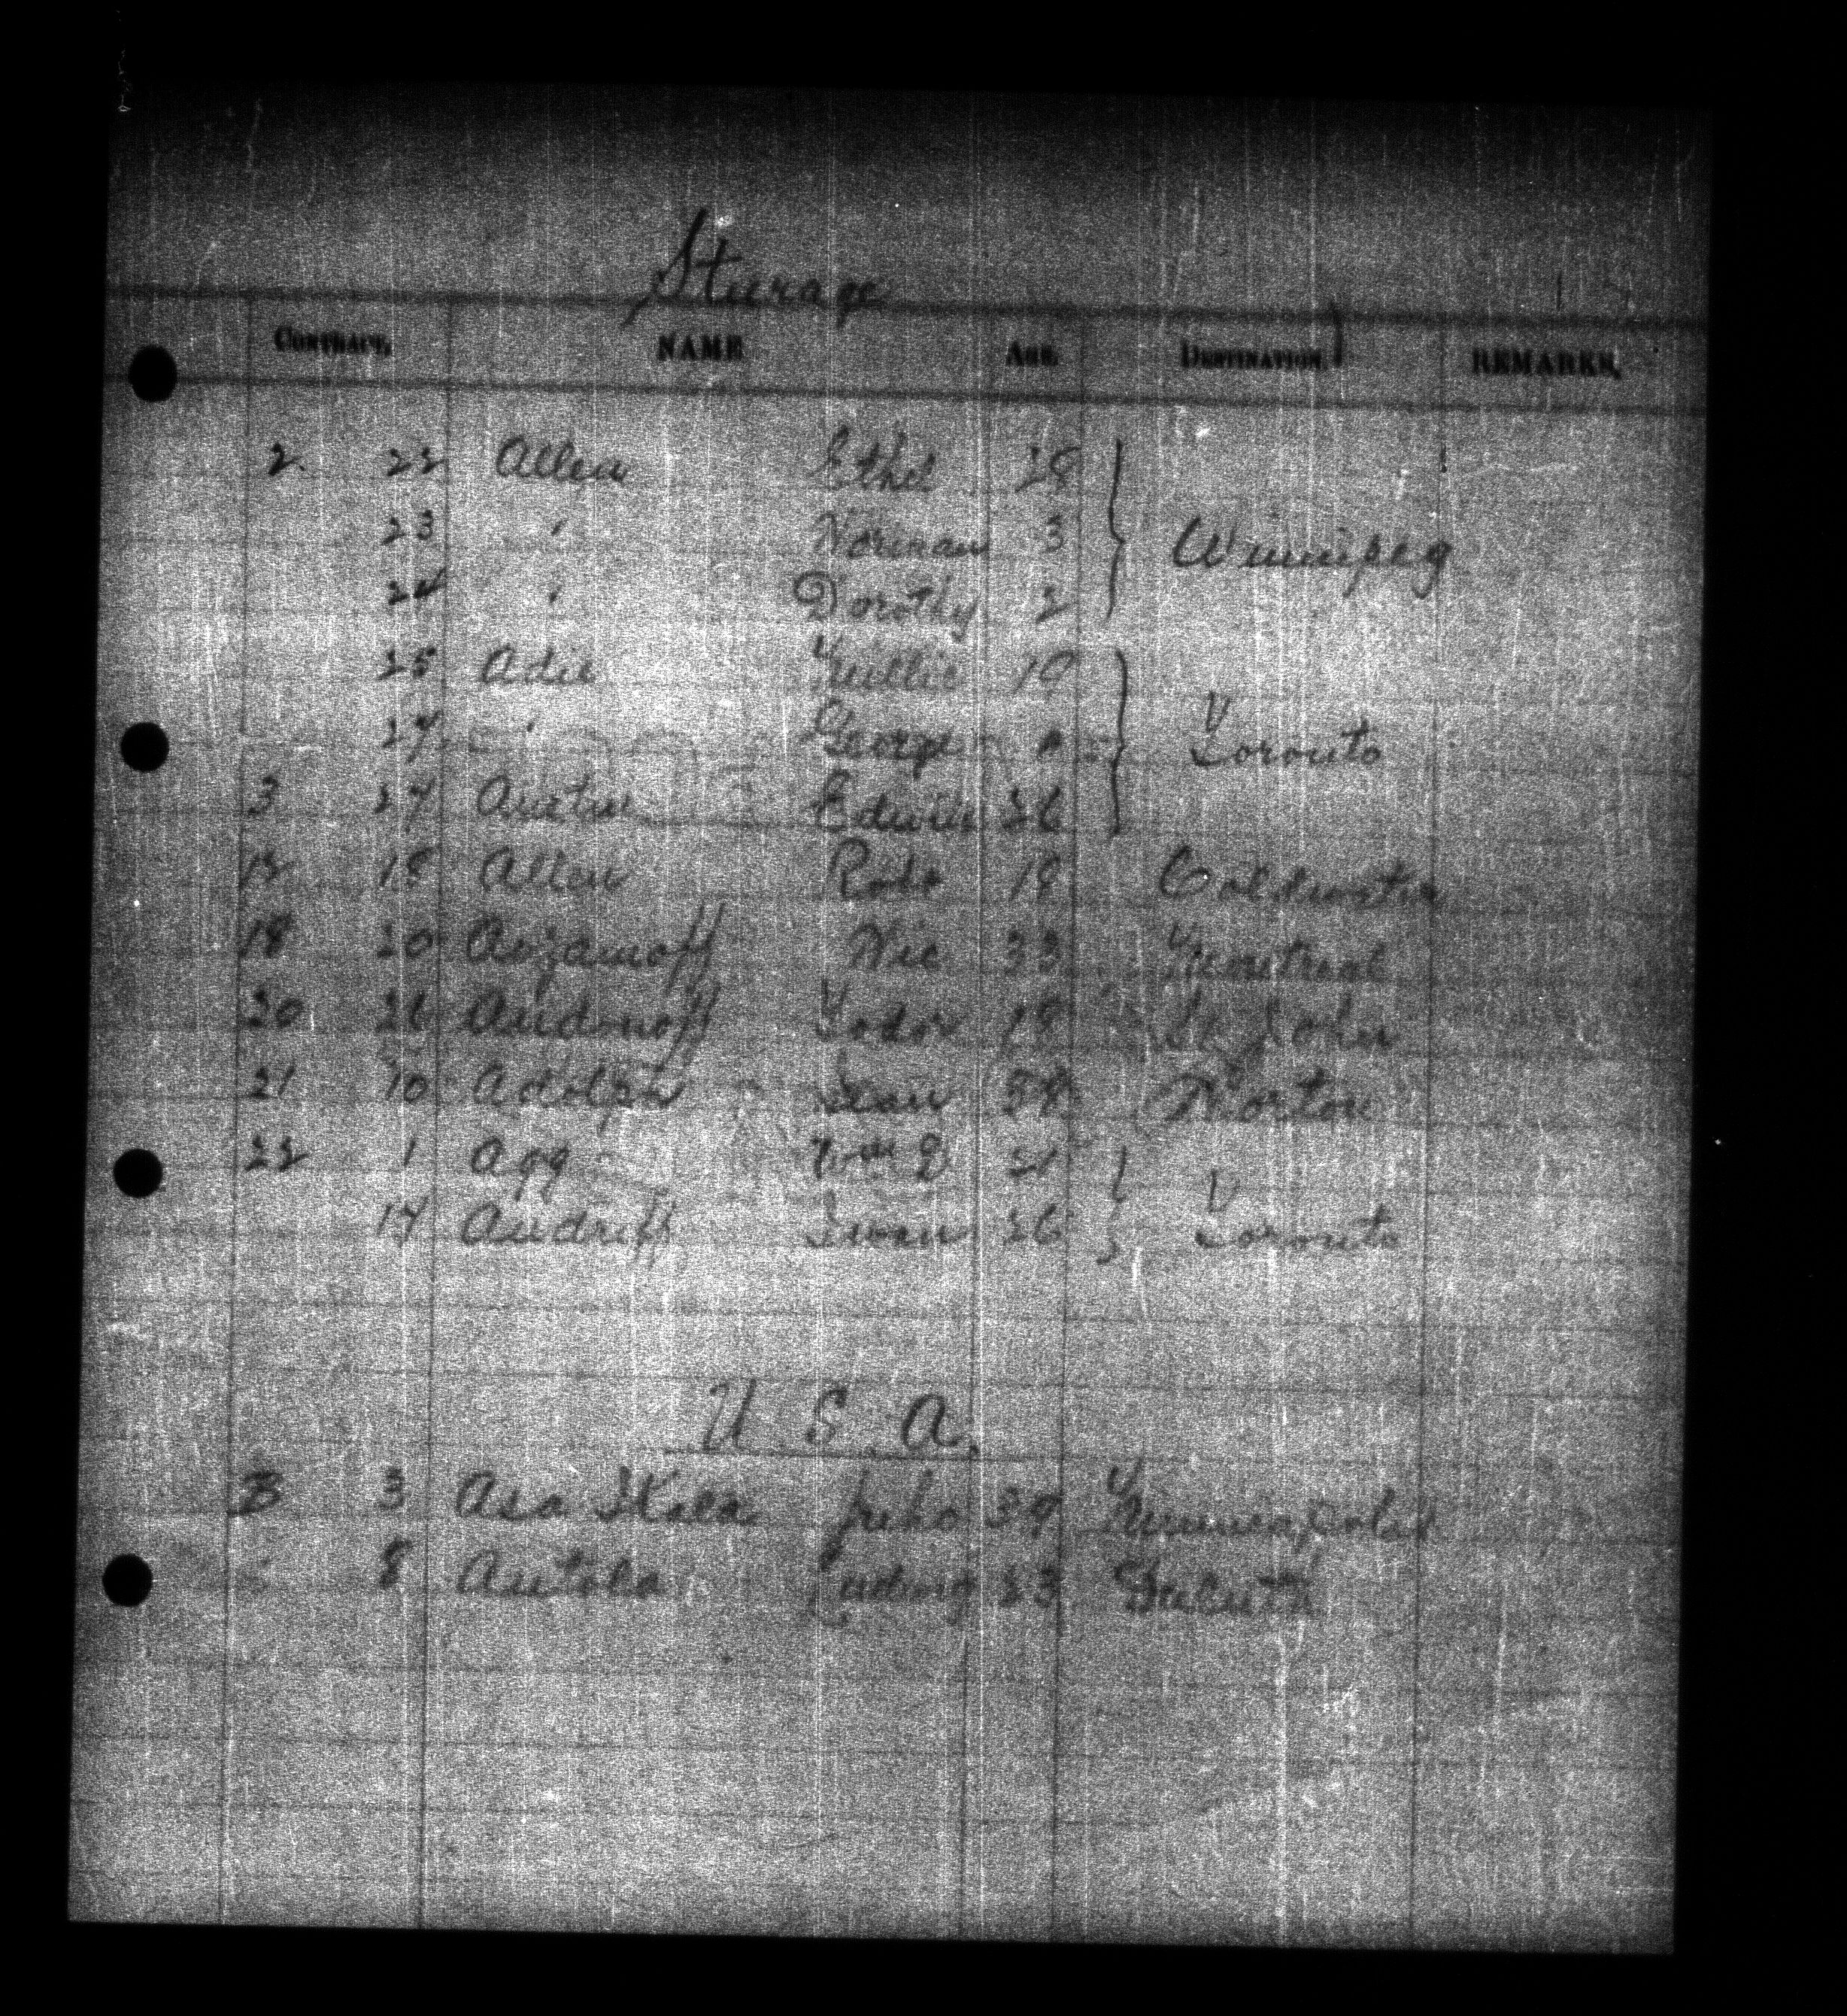 Steerage
CONTRACT. NAME AGE. DESTINATION. REMARKS.
2. 22 Allen Ethel 28
23 " Norman 3 Winnipeg
24 " Dorothy 2
25 Adie Millie
27 " George Toronto
3 27 Austin Edwin 26
12 18 Allen Robt 18 Coldwater
18 20 Avzamoff Nic 33 Montreal
20 26 Andonoff Todor 19 St John
21 10 Adolph Jean Norton
22 1 Agg Wm 21
17 Andriff Iwan 26 Toronto
U. S. A.
B 3 Asa Juho 39 Minneapolis
8 Antola Ludwig 23 Duluth